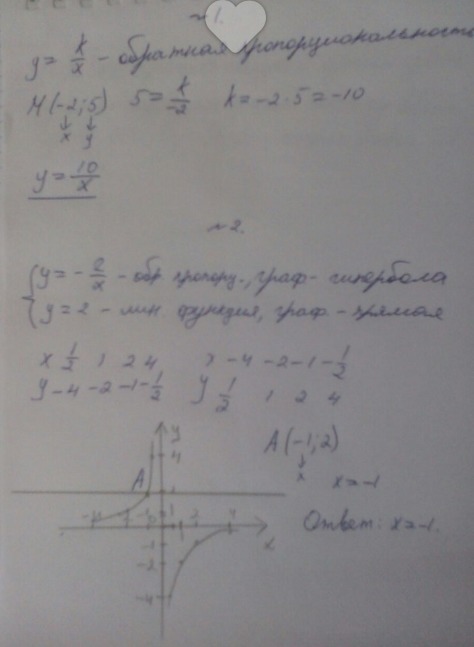 №1.
y = k/x - обратная пропорциональность
M(-2;5) 5 = k/-2 k = -2·5 = -10
x y
y = 10/x
№2.
y = -2/x - обр. пропорц., граф - гипербола
y = 2 - лин. функция, граф. - прямая
x 1/2 1 2 4 x -4 -2 -1 -1/2
y -4 -2 -1 -1/2 y 1/2 1 2 4
A(-1;2)
x
x = -1
Ответ: x = -1.
y
4
A
1
2 4
x
-1
-2
-4